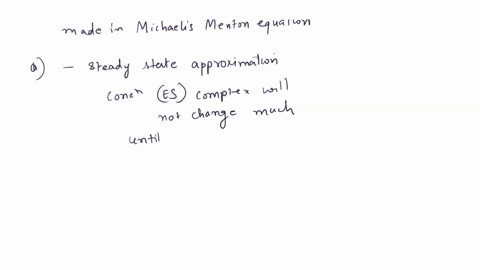 made in Michaelis Menton equation
a) - steady state approximation
Concn (ES) complex will
not change much
until